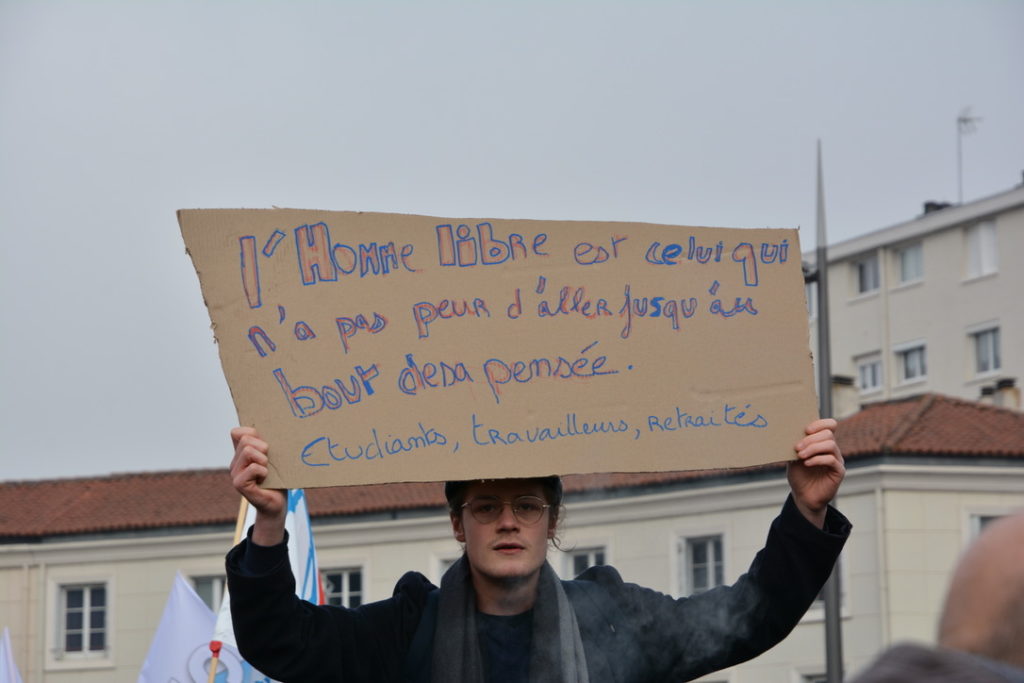 l'Homme libre est celui qui
n'a pas peur d'aller jusqu'au
bout de sa pensée.
Etudiants, travailleurs, retraités